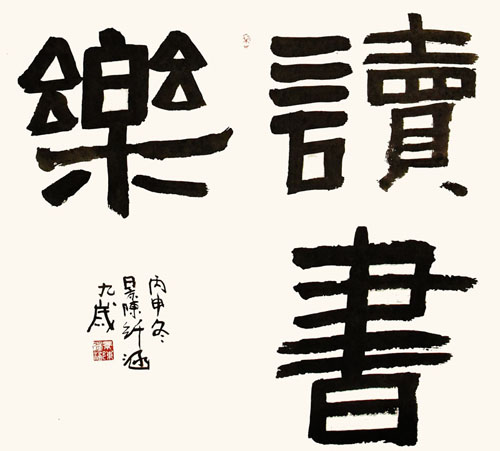 讀書
樂
丙申冬
陳 涵
九歲